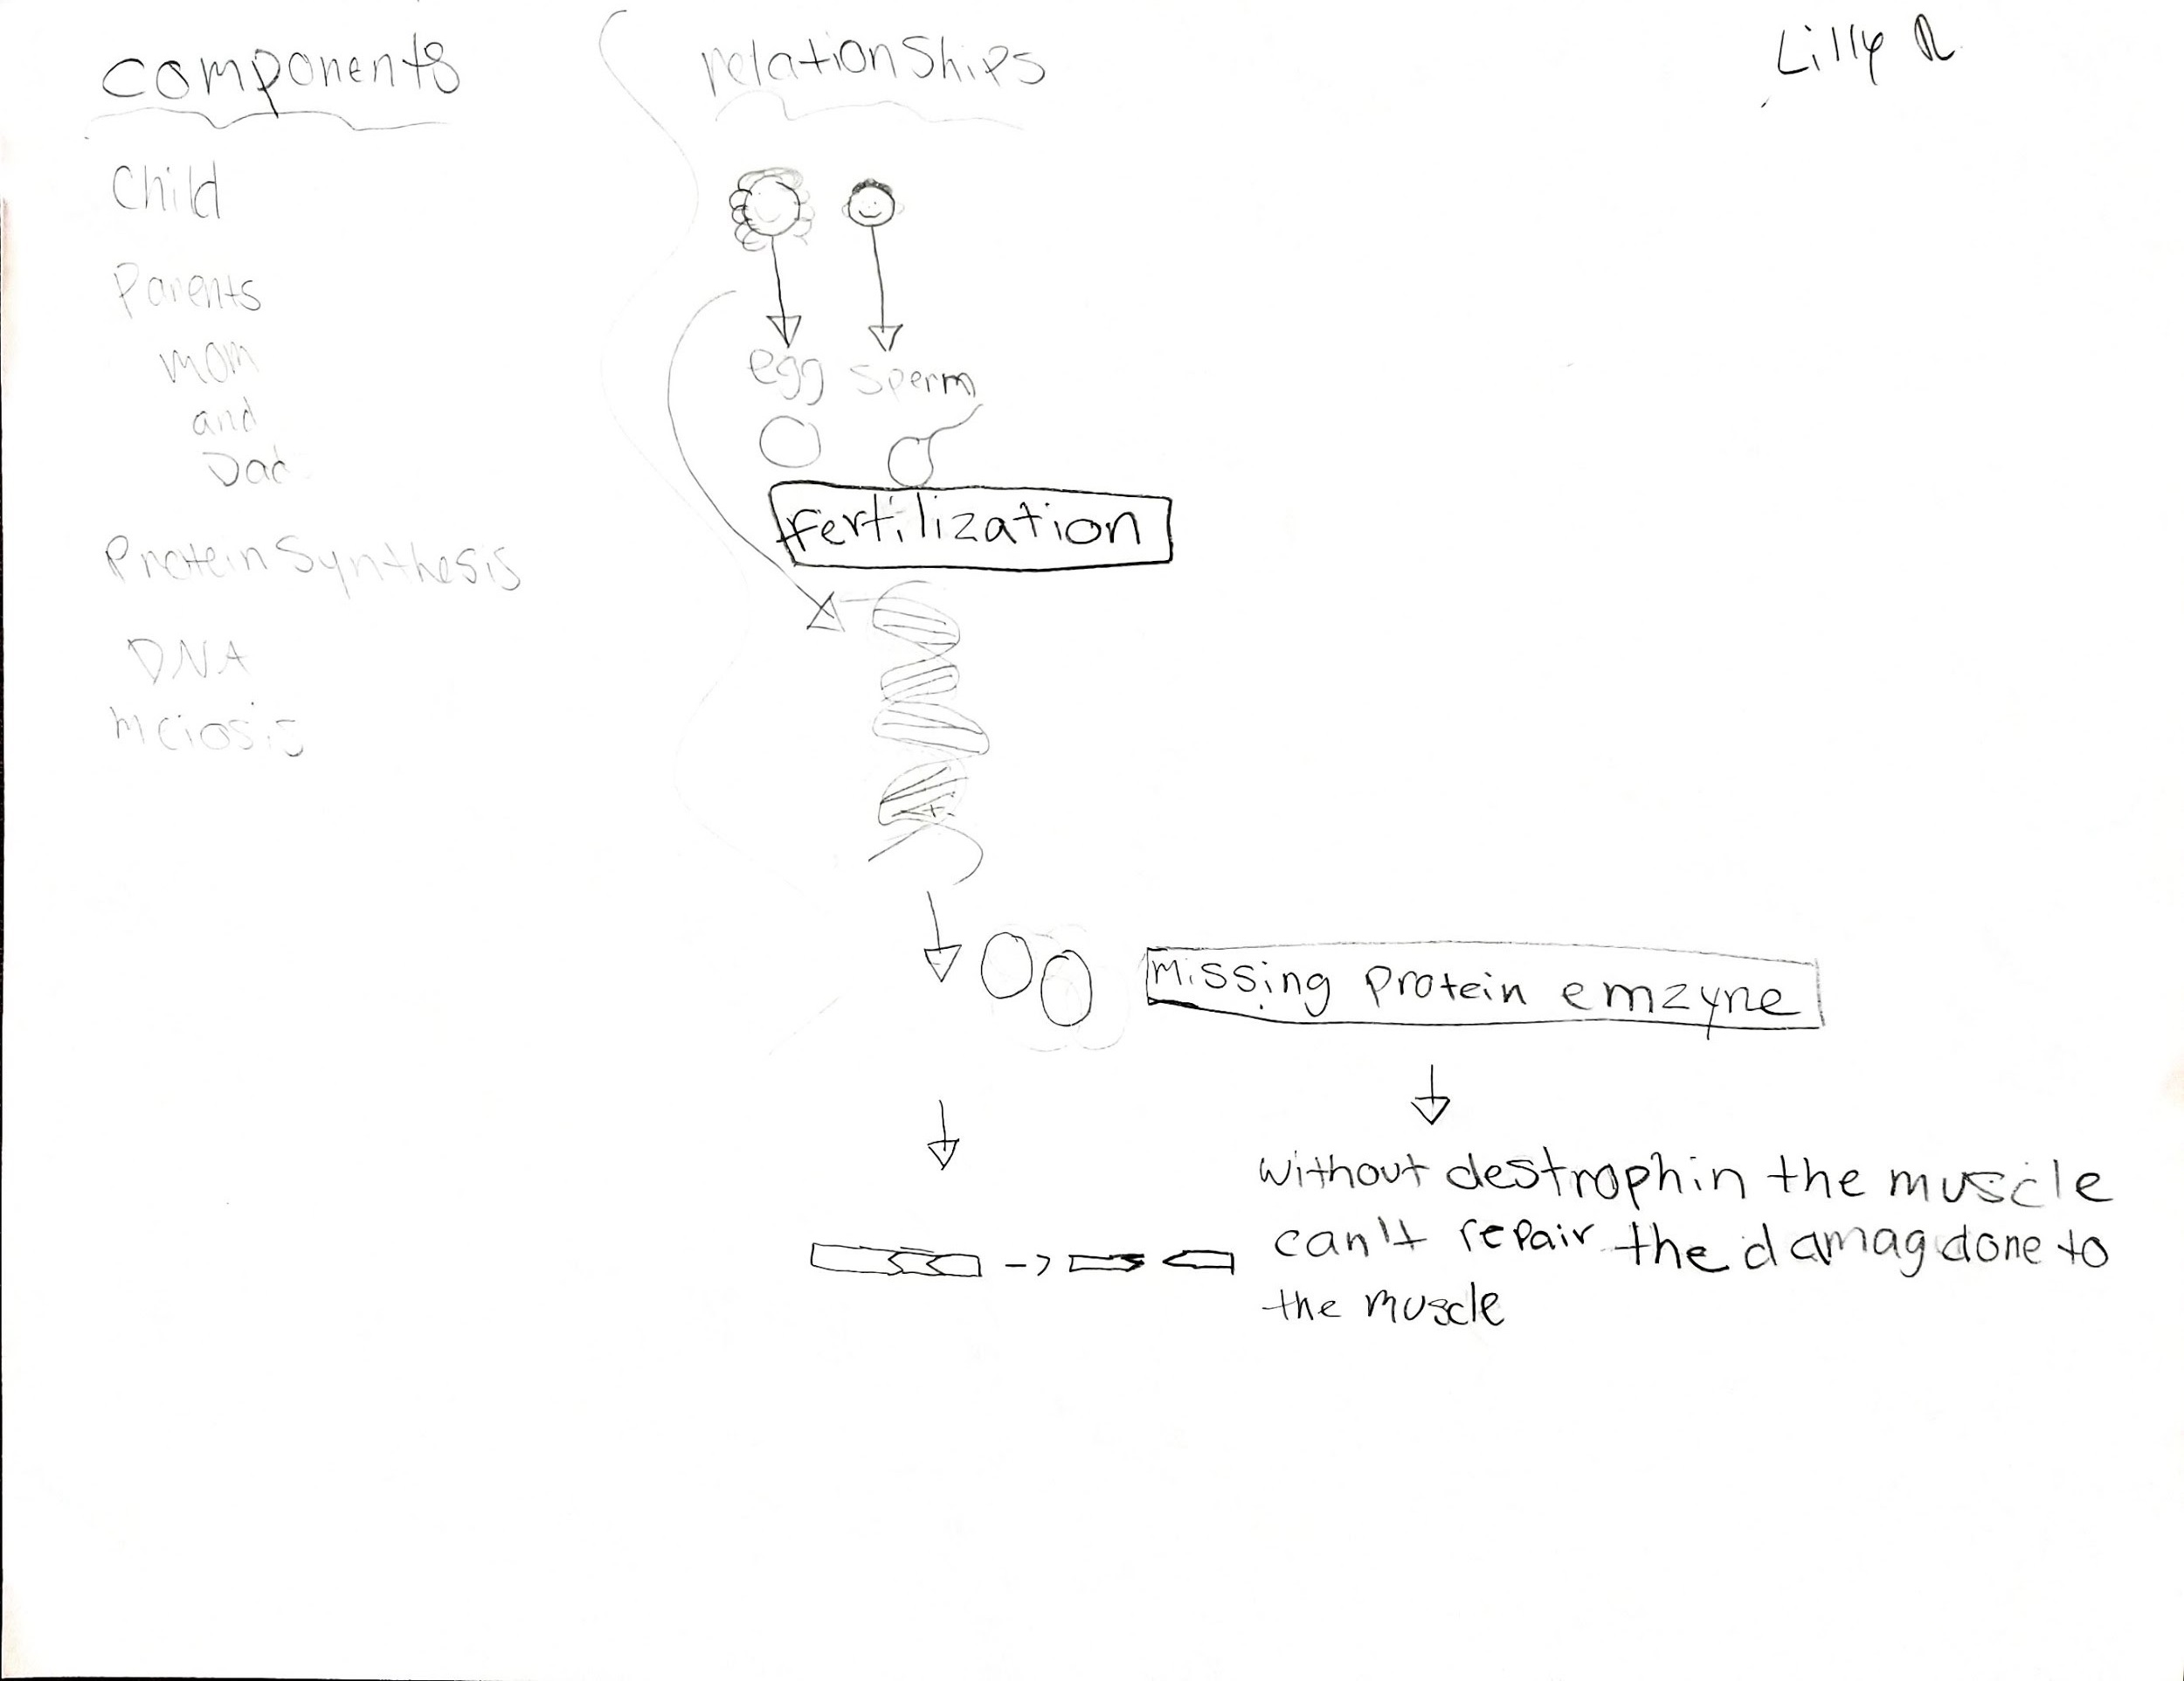 components
relationships
Lilly R
Child
Parents
mom
and
Dad
Protein Synthesis
DNA
Meiosis
egg sperm
fertilization
Missing Protein emzyne
without destrophin the muscle
can't repair the damag done to
the muscle